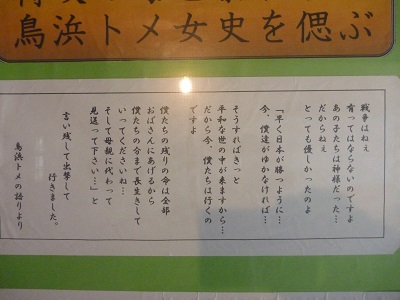 鳥浜トメ女史を偲ぶ
戦争はねぇ
有ってはならないのですよ
あの子たちは神様だった…
だからねぇ
とっても優しかったのよ
「早く日本が勝つように…
今、僕達がゆかなければ…
そうすればきっと
平和な世の中が来ますから…
だから今、僕たちは行くの
ですよ
僕たちの残りの命は全部
おばさんにあげるから
僕たちの分まで長生きして
いってくださいね…
そして母親に代わって
見送って下さい…」と
言い残して出撃して
行きました。
鳥浜トメの語りより